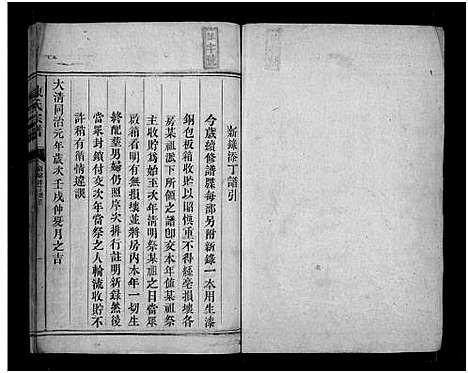 新錄添丁譜引
今歲續修譜牒每部另附新錄一本用生漆
銅包板箱收貯以昭慎重不得絲毫損壞等
房某祖派下所領之譜卽交本年值某祖祭
主收貯為始至次年清明祭某祖之日當眾
啟箱看明有無損壞並將房內本年一切生
終配塟男婦仍照序次排行註明新錄然後
當眾封鎖付交次年當祭之人輪流收貯不
許稍有循情違誤
大清同治元年歲次壬戌仲夏月之吉
氏宗譜